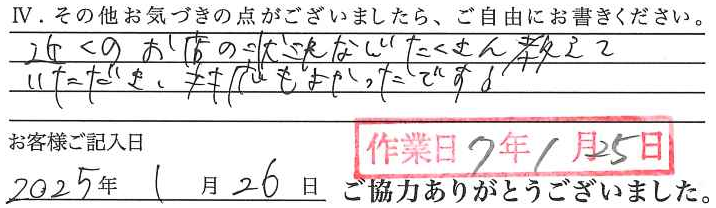 Ⅳ．その他お気づきの点がございましたら、ご自由にお書きください。
近くのお店の なども たくさん教えて
いただき、 もよかったです。
お客様ご記入日
作業日 7年 1月25日
2025年 1月26日 ご協力ありがとうございました。